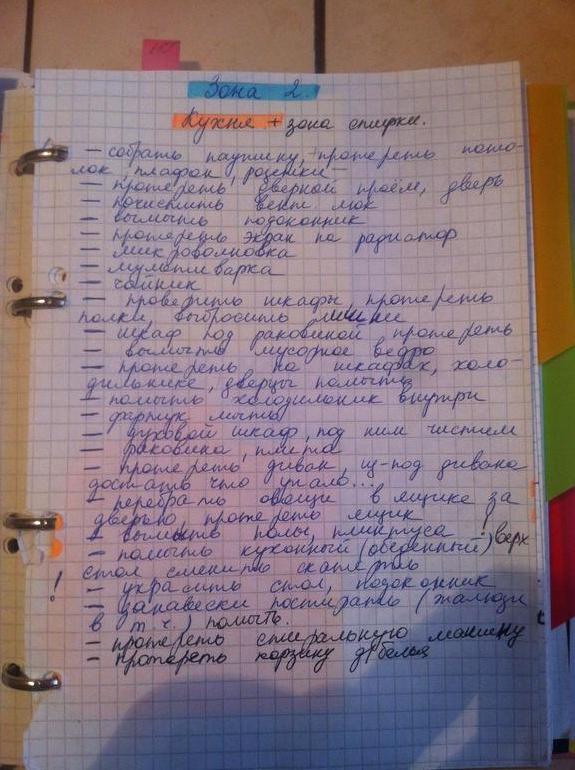 Зона 2.
Кухня + зона стирки.
– собрать паутину, протереть пото-
лок, плафон, розетки –
– протереть дверной проём, дверь
– почистить вент. люк
– вымыть подоконник
– протереть экран на радиатор
– микроволновка
– мультиварка
– чайник
– проверить шкафы, протереть
полки, выбросить лишнее
– шкаф под раковиной протереть
– вымыть мусорное ведро
– протереть на шкафах, холо-
дильнике, дверцы помыть
– помыть холодильник внутри
– фартук мыть
– духовой шкаф, под ним чистим
– раковина, плита
– протереть диван, из-под дивана
достать что упало...
– перебрать овощи в ящике за
дверью, протереть ящик
– вымыть полы, плинтуса !
– помыть кухонный (обеденный) верх
стол сменить скатерть
! – украсить стол, подоконник
– занавески постирать (жалюзи
в т.ч.) помыть.
– протереть стиральную машину
– протереть корзину д/белья